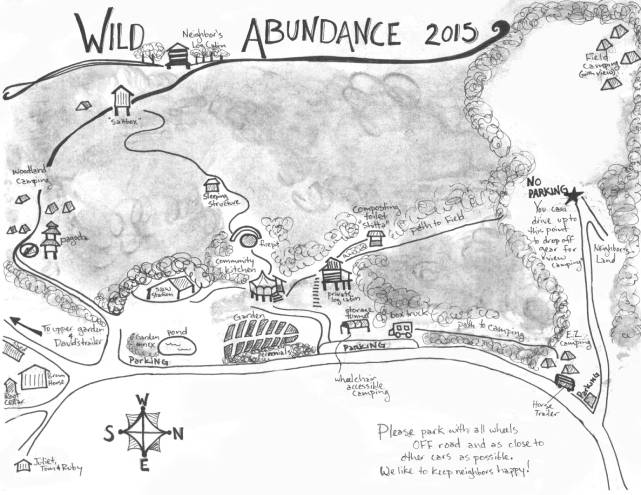 WILD ABUNDANCE 2015
Neighbor's
Log Cabin
Field
Camping
"saltbox"
Woodland
Camping
Sleeping
structure
pagoda
Composting
toilet
path to Field
NO
PARKING
You can
drive up to
this point
to drop off
gear for
view
camping
Neighbor's
Land
Firepit
community
kitchen
private
log cabin
Saw
Station
storage
box truck
path to camping
E.Z.
Camping
To upper garden
David's trailer
Garden
annex
Pond
Garden
perennials
PARKING
PARKING
PARKING
wheelchair
accessible
camping
Horse
Trailer
Root
Cellar
House
Juliet,
Tom & Ruby
W
S N
E
Please park with all wheels
OFF road and as close to
other cars as possible.
We like to keep neighbors happy!